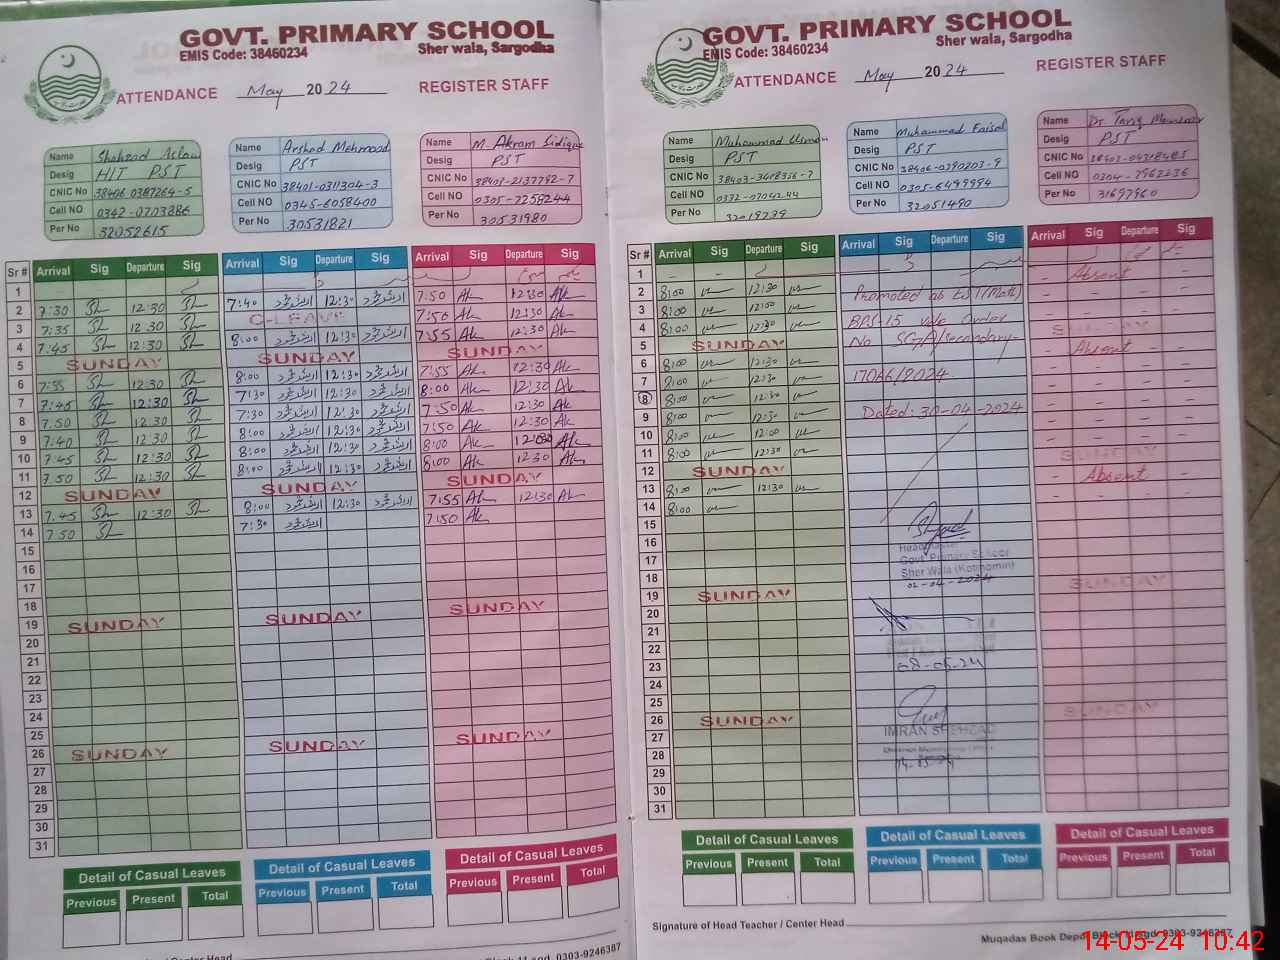 GOVT. PRIMARY SCHOOL
EMIS Code: 38460234 Sher wala, Sargodha
ATTENDANCE May 2024 REGISTER STAFF
Name Shahzad Aslam
Desig HIT PST
CNIC No 38406 0387264-5
Cell NO 0342-0703886
Per No 32052615
Name Arshad Mehmood
Desig PST
CNIC No 38401-0311304-3
Cell NO 0345-6058400
Per No 30531821
Name M. Akram Sidique
Desig PST
CNIC No 38403-2137792-7
Cell NO 0305-7259244
Per No 30531980
Sr # Arrival Sig Departure Sig Arrival Sig Departure Sig Arrival Sig Departure Sig
1
2 7:30 12:30 7:40 ارشد محمود 12:30 ارشد محمود 7:50 Ak 12:30 Ak
3 7:35 12:30 C-LEAVE 7:50 Ak 12:30 Ak
4 7:45 12:30 8:00 ارشد محمود 12:30 ارشد محمود 7:55 Ak 12:30 Ak
5 SUNDAY SUNDAY SUNDAY
6 7:55 12:30 8:00 ارشد محمود 12:30 ارشد محمود 7:55 Ak 12:30 Ak
7 7:45 12:30 7:30 ارشد محمود 12:30 ارشد محمود 8:00 Ak 12:30 Ak
8 7:50 12:30 7:30 ارشد محمود 12:30 ارشد محمود 7:50 Ak 12:30 Ak
9 7:40 12:30 8:00 ارشد محمود 12:30 ارشد محمود 7:50 Ak 12:30 Ak
10 7:45 12:30 8:00 ارشد محمود 12:30 ارشد محمود 8:00 Ak 12:30 Ak
11 7:50 12:30 8:00 ارشد محمود 12:30 ارشد محمود 8:00 Ak 12:30 Ak
12 SUNDAY SUNDAY SUNDAY
13 7:45 12:30 8:00 ارشد محمود 12:30 ارشد محمود 7:55 Ak 12:30 Ak
14 7:50 7:30 ارشد محمود 7:50 Ak
15
16
17
18
19 SUNDAY SUNDAY SUNDAY
20
21
22
23
24
25
26 SUNDAY SUNDAY SUNDAY
27
28
29
30
31
Detail of Casual Leaves Detail of Casual Leaves Detail of Casual Leaves
Previous Present Total Previous Present Total Previous Present Total
0303-9246387
GOVT. PRIMARY SCHOOL
EMIS Code: 38460234 Sher wala, Sargodha
ATTENDANCE May 2024 REGISTER STAFF
Name Muhammad Usman
Desig PST
CNIC No 38403-3408356-7
Cell NO 0332-0704244
Per No 32019739
Name Muhammad Faisal
Desig PST
CNIC No 38406-0290203-9
Cell NO 0305-6499994
Per No 32051490
Name Dr Tariq
Desig PST
CNIC No
Cell NO 0304-7962236
Per No 31697960
Sr # Arrival Sig Departure Sig Arrival Sig Departure Sig Arrival Sig Departure Sig
1 Absent
2 8:00 12:30 Promoted as EST(Math)
3 8:00 12:00 BPS-15 vide Order
4 8:00 12:30 No SGA/secondary- SUNDAY
5 SUNDAY Absent
6 8:00 12:30 17066/2024
7 8:00 12:30
8 8:00 12:30 Dated: 30-04-2024
9 8:00 12:30
10 8:00 12:00
11 8:00 12:30 SUNDAY
12 SUNDAY Absent
13 8:00 12:30
14 8:00
15
16 Headmaster
17 Govt. Primary School
18 Sher Wala (Kotmomin) SUNDAY
19 SUNDAY 02-04-2024
20
21
22
23 08-05-24
24
25 SUNDAY
26 SUNDAY
27 IMRAN SHEHZAD
28 14-05-24
29
30
31
Detail of Casual Leaves Detail of Casual Leaves Detail of Casual Leaves
Previous Present Total Previous Present Total Previous Present Total
Signature of Head Teacher / Center Head
Muqadas Book Depo Block 11 sgd. 0303-9246387
14-05-24 10:42